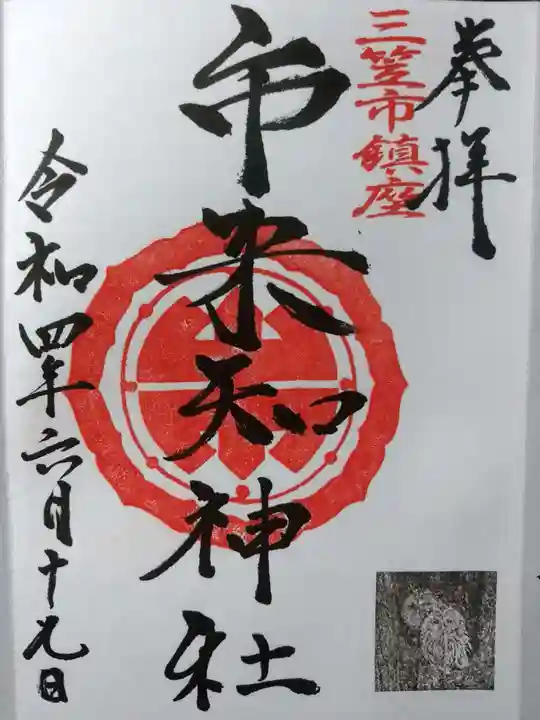 奉拝
三笠市鎮座
市来知神社
令和四年六月十九日